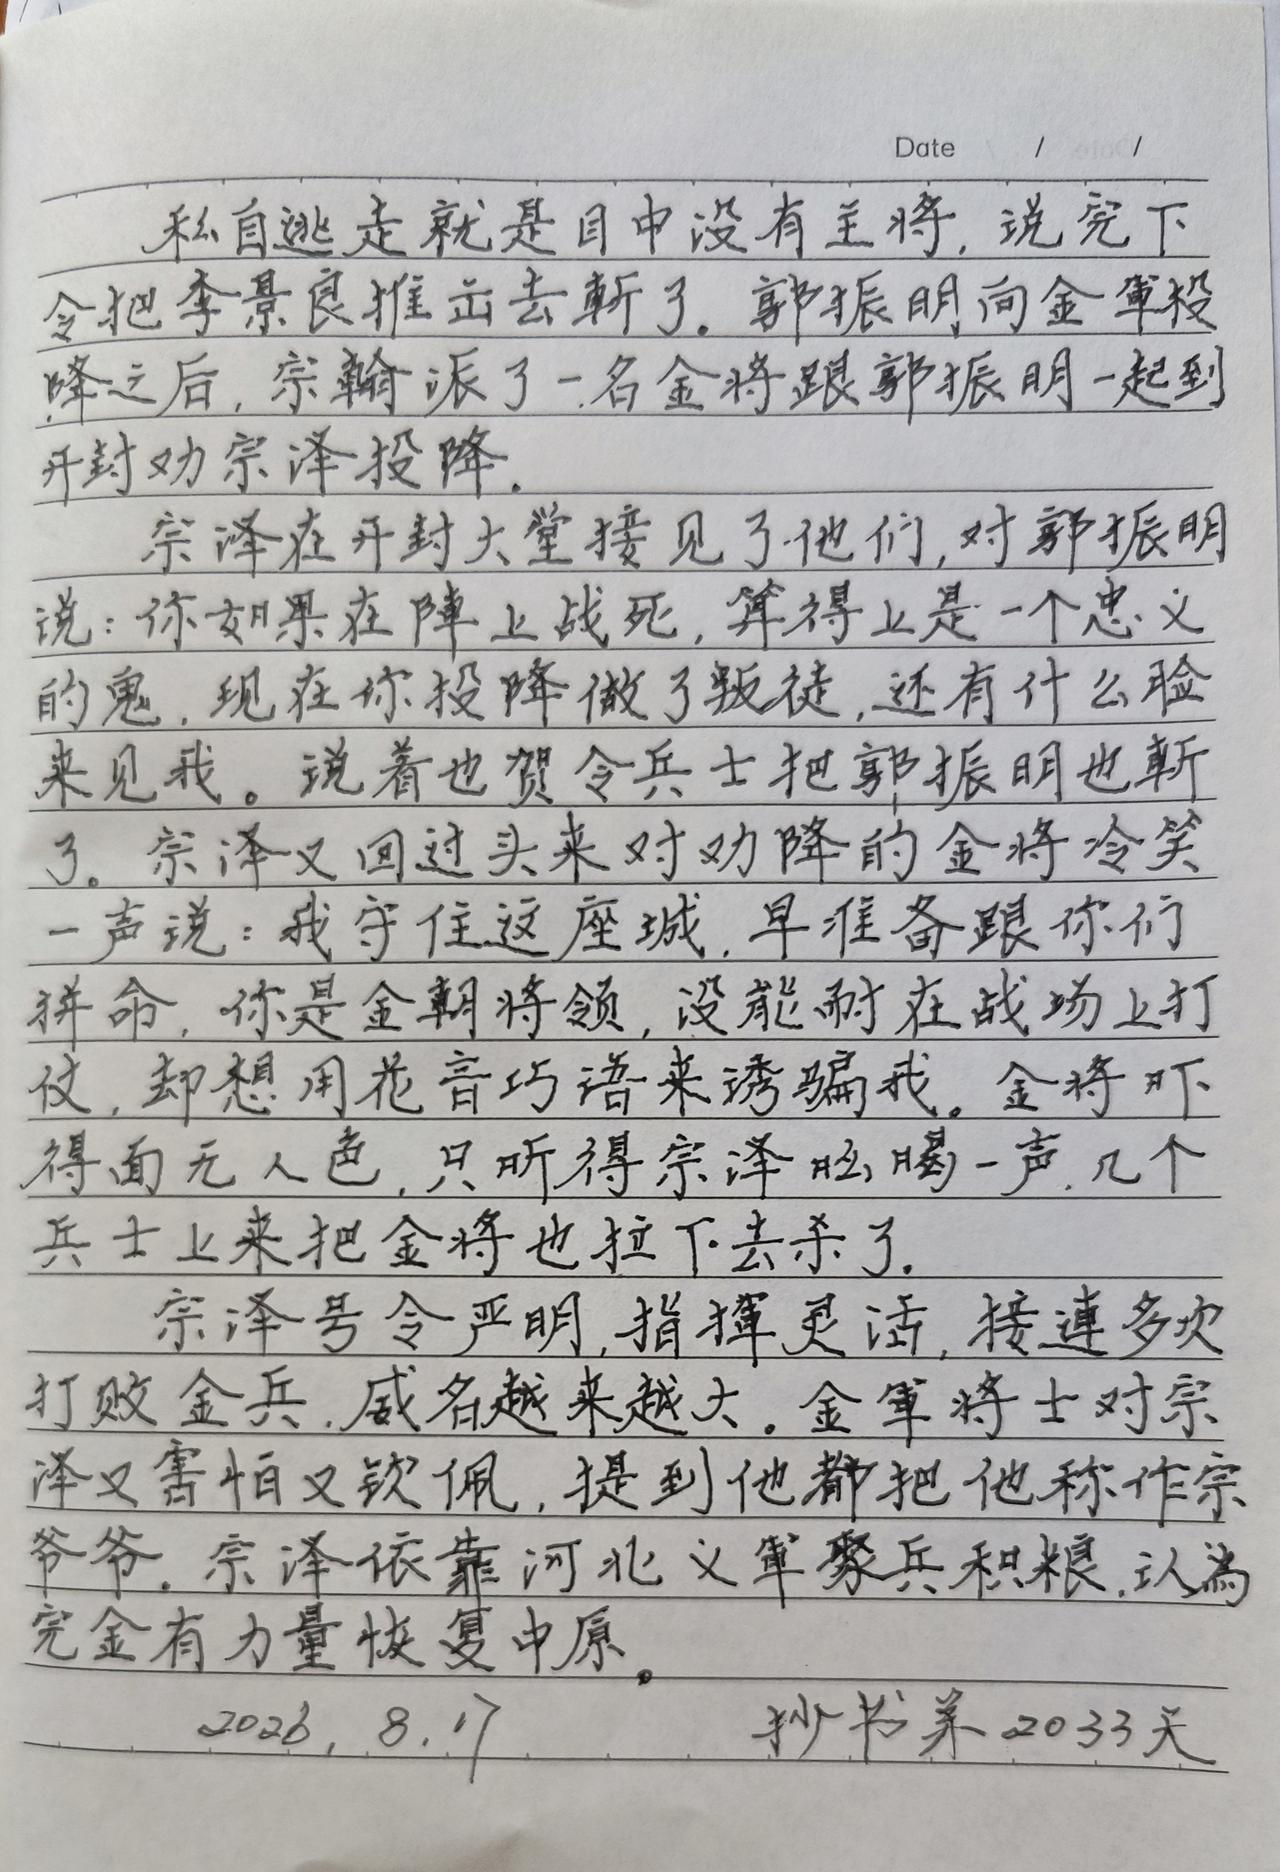 Date / /
私自逃走就是目中没有主将，说完下
令把李景良推出去斬了。郭振明向金軍投
降之后，宗翰派了一名金将跟郭振明一起到
开封劝宗泽投降．
宗泽在开封大堂接见了他们，对郭振明
说：你如果在陣上战死，算得上是一个忠义
的鬼，现在你投降做了叛徒，还有什么脸
来见我。说着也贺令兵士把郭振明也斬
了。宗泽又回过头来对劝降的金将冷笑
一声说：我守住这座城，早准备跟你们
拼命，你是金朝将领，没能耐在战场上打
仗，却想用花音巧语来诱骗我。金将吓
得面无人色，只听得宗泽吆喝一声，几个
兵士上来把金将也拉下去杀了．
宗泽号令严明，指揮灵活，接連多次
打败金兵，威名越来越大。金軍将士对宗
泽又害怕又钦佩，提到他都把他称作宗
爷爷。宗泽依靠河北义軍聚兵积粮，认為
完全有力量恢复中原。
2026.8.17 抄书第2033天